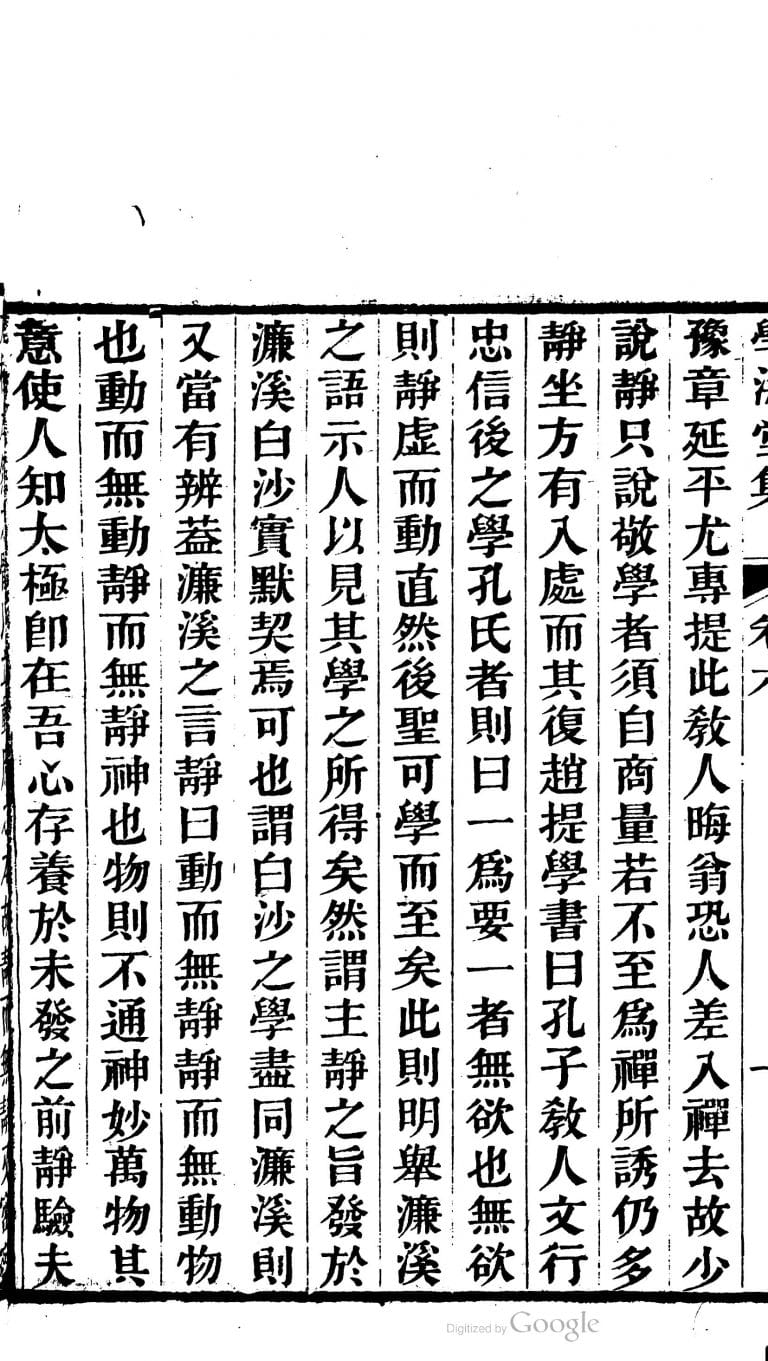 學海堂集 卷六
豫章延平尤專提此敎人晦翁恐人差入禪去故少
說靜只說敬學者須自商量若不至爲禪所誘仍多
靜坐方有入處而其復趙提學書曰孔子敎人文行
忠信後之學孔氏者則曰一爲要一者無欲也無欲
則靜虛而動直然後聖可學而至矣此則明舉濂溪
之語示人以見其學之所得矣然謂主靜之旨發於
濂溪白沙實默契焉可也謂白沙之學盡同濂溪則
又當有辨葢濂溪之言靜曰動而無靜靜而無動物
也動而無動靜而無靜神也物則不通神妙萬物其
意使人知太極卽在吾心存養於未發之前靜驗夫
Digitized by Google